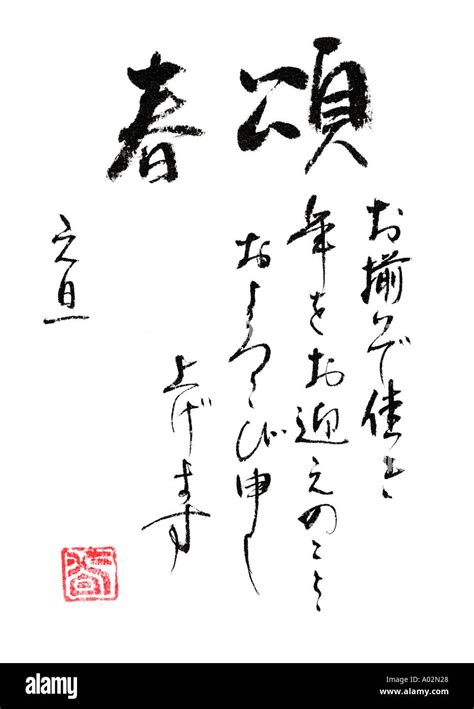 頌春
お揃いで佳き
年をお迎えのことゝ
およろこび申し
上げます
元旦
alamy
Image ID: A02N28
www.alamy.com